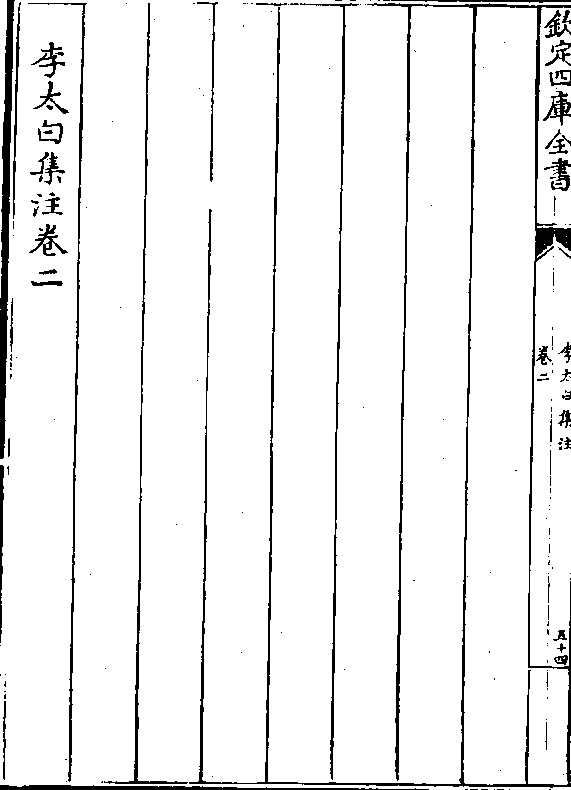 欽定四庫全書
李太白集注
卷二
五十四
李太白集注卷二